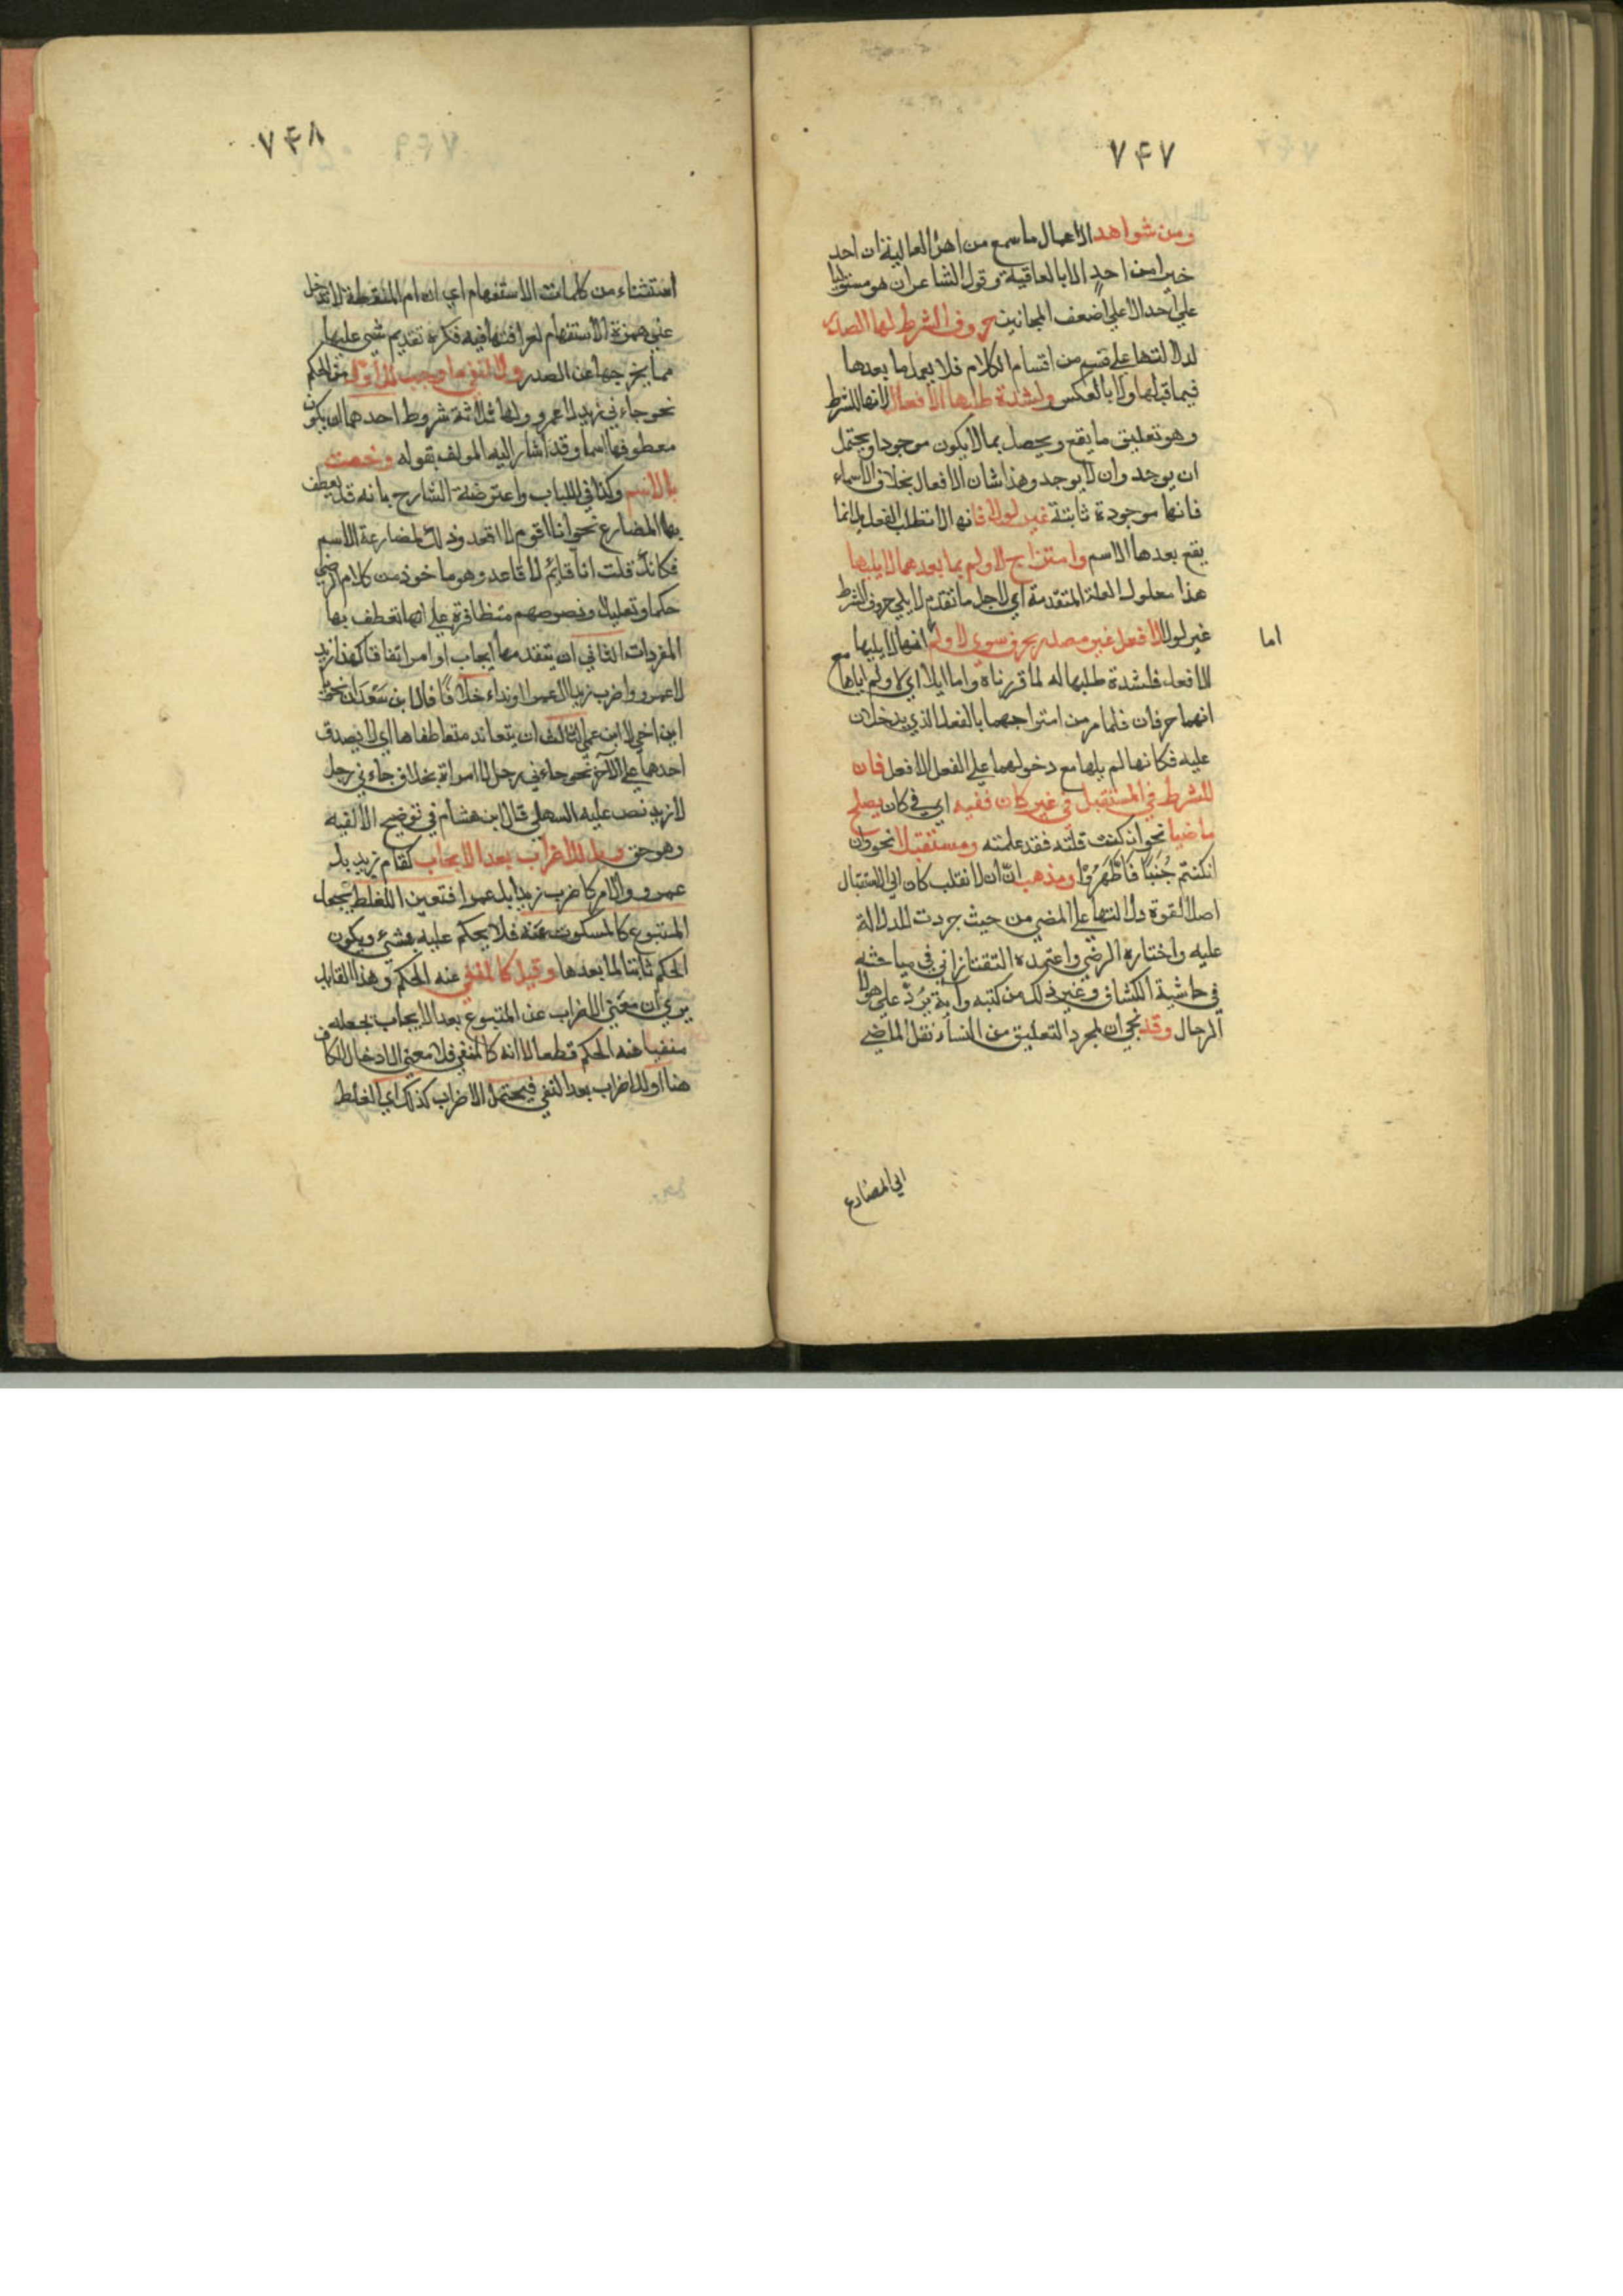 ٧۴٧
ومن شواهد الاعمال ما سمع من اهل العالية ان احد
خيرا من احد الا بالعافية وقول الشاعر ان هو مستوليا
علي احد الا علي اضعف المجانين حروف الشرط لها الصدر
لدلالتها علي قسم من اقسام الكلام فلا يعمل ما بعدها
فيما قبلها ولا بالعكس ولشدة طلبها الافعال لانها للشرط
وهو تعليق ما يقع ويحصل بما لا يكون موجودا ويحتمل
ان يوجد وان لا يوجد وهذا شان الافعال بخلاف الاسماء
فانها موجودة ثابتة غير لولا فانها لا تطلب الفعل بل انما
يقع بعدها الاسم وامتزاج لا ولم بما بعدهما لا يليها
هذا معلول العلة المتقدمة اي لاجل ما تقدم لا يلي حروف الشرط
غير لولا الا فعل غير مصدر بحرف سوي لا ولم انها لا يليها
اما
الا فعل فلشدة طلبها له لما قررناه واما ايلا اي لا ولم اياها مع
انهما حرفان فلما مر من امتزاجهما بالفعل الذي يدخلان
عليه فكانها لم يلها مع دخولهما علي الفعل الا فعل فان
للشرط في المستقبل في غير كان ففيه اي في كان يصلح
ماضيا نحو ان كنت قلته فقد علمته ومستقبلا نحو وان
كنتم جُنُبًا فَاطَّهَّرُوْا ومذهب انّ ان لا تقلب كان الي الاستقبال
اصلا لقوة دلالتها علي المضي من حيث جردت للدلالة
عليه واختاره الرضي واعتمده التفتازاني في مباحثه
في حاشية الكشاف وغير ذلك من كتبه وآية تردّ علي هولا
الرجال وقد تجي ان لمجرد التعليق من النساء نقل الماضي
الي المضارع
٧۴٨
استثناء من كلمات الاستفهام اي ان ام المنقطعة لا تدخل
علي همزة الاستفهام لعراقتها فيه فكره تقديم شي عليها
مما يخرجها عن الصدر ولا لنفي ما وجب للاول من الحكم
نحو جاءني زيد لا عمرو ولها ثلاثة شروط احدهما ان يكون
معطوفها اسما وقد اشار اليه المولف بقوله وخصت
بالاسم وكذا في اللباب واعترضه الشارح بانه قد يعطف
بها المضارع نحو انا اقوم لا اقعد وذلك لمضارعة الاسم
فكانك قلت انا قائم لا قاعد وهو ماخوذ من كلام الرضي
حكما وتعليلا ونصوصهم متظافرة علي انها تعطف بها
المفردات الثاني ان يتقدمها ايجاب او امر اتفاقا كهذا زيد
لا عمرو واضرب زيدا لا عمرا او نداء خلافًا لابن سَعْدَان نحو يا
ابن اخي لا ابن عمي الثالث ان يتعاند متعاطفاها اي لا يصدق
احدهما علي الآخر نحو جاءني رجل لا امراة بخلاف جاءني رجل
لا زيد نص عليه السهيلي قال ابن هشام في توضيح الالفيه
وهو حق وبل للاضراب بعد الايجاب كقام زيد بل
عمرو والامر كاضرب زيدا بل عمرا فتعين الغلط بجعل
المتبوع كالمسكوت عنه فلا يحكم عليه بشيء ويكون
الحكم ثابتا لما بعدها وقيل كالمنفي عنه الحكم وهذا القايل
يري ان معني الاضراب عن المتبوع بعد الايجاب جعله
منفيا عنه الحكم قطعا لا انه كالمنفي فلا معني لادخال الكاف
هنا او للاضراب بعد النفي فيحتمل الاضراب كذلك اي الغلط